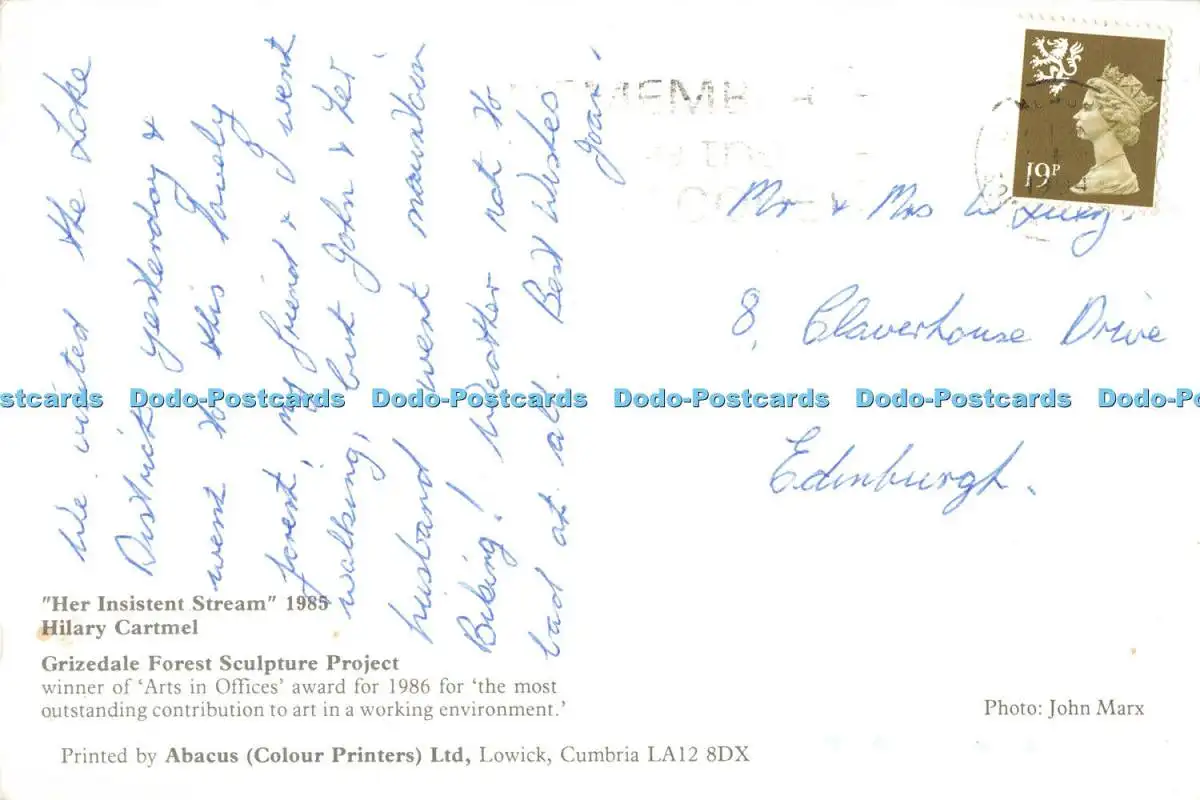 We visited the Lake
District yesterday &
went to this lovely
forest, my friend & I went
walking, but John & her
husband went mountain
Biking! Weather not to
bad at all. Best Wishes
Mr & Mrs
8, Claverhouse Drive
Edinburgh.
19P
Dodo-Postcards Dodo-Postcards Dodo-Postcards Dodo-Postcards
"Her Insistent Stream" 1985
Hilary Cartmel
Grizedale Forest Sculpture Project
winner of 'Arts in Offices' award for 1986 for 'the most
outstanding contribution to art in a working environment.'
Photo: John Marx
Printed by Abacus (Colour Printers) Ltd, Lowick, Cumbria LA12 8DX